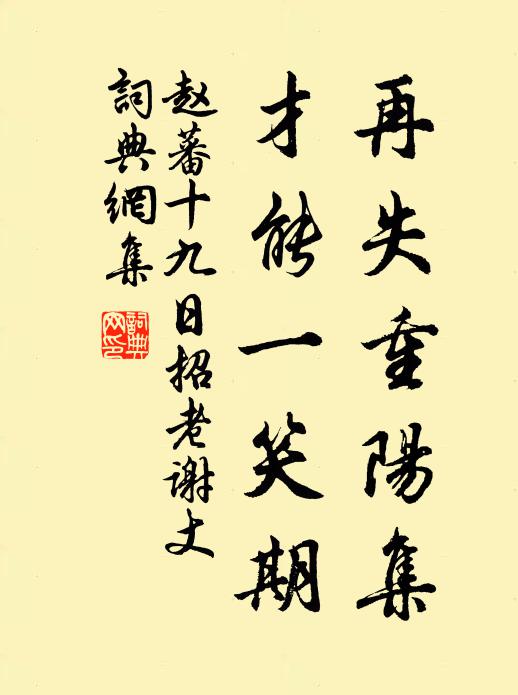 再失重陽集
才能一笑期
赵蕃十九日招老謝丈
詞典網集
詞典网印